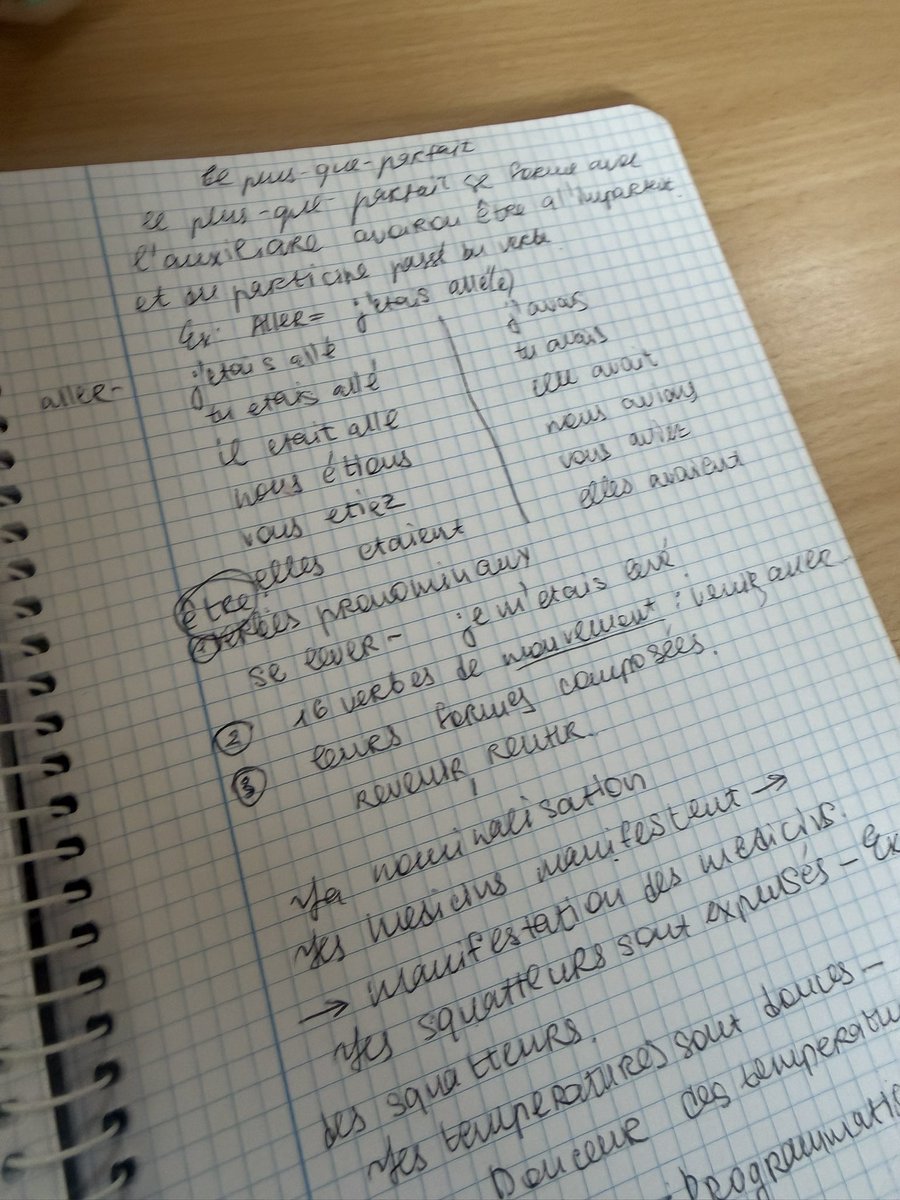 Le plus-que-parfait
Le plus-que-parfait se forme avec
l'auxiliare avoir ou être à l'imparfait
et du participe passé du verbe.
Ex: Aller = j'étais allé(e)
j'etais allé
aller - tu etais allé
il etait allé
nous étions
vous etiez
elles etaient
j'avais
tu avais
elle avait
nous avions
vous aviez
elles avaient
être:
① verbes pronominaux
se lever - je m'etais levé
② 16 verbes de mouvement : venir, aller
③ leurs formes composées.
revenir, rentrer.
La nominalisation
Les medicins manifestent →
→ manifestation des medicins.
Les squatteurs sont expulsés - Ex
des squatteurs.
Les temperatures sont douces -
Douceur des temperatu
Programmati